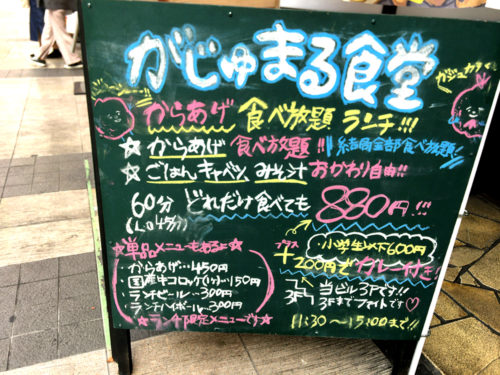 がじゅまる食堂
ガジュカラ
からあげ 食べ放題 ランチ!!!
☆からあげ 食べ放題!! 結局全部食べ放題!
☆ごはん キャベツ みそ汁 おかわり自由!!
60分 どれだけ食べても 880円!!!
(L.O 45分)
☆単品メニューもあるよ☆
・からあげ…450円
・国産牛コロッケ(1ケ)…150円
・ランチビール…300円
・ランチハイボール…300円
☆ランチ限定メニューです☆
・小学生以下600円
プラス
+200円で カレー付き!
当ビル3Fです!!
3Fまでファイトです♡
11:30〜15:00まで!!